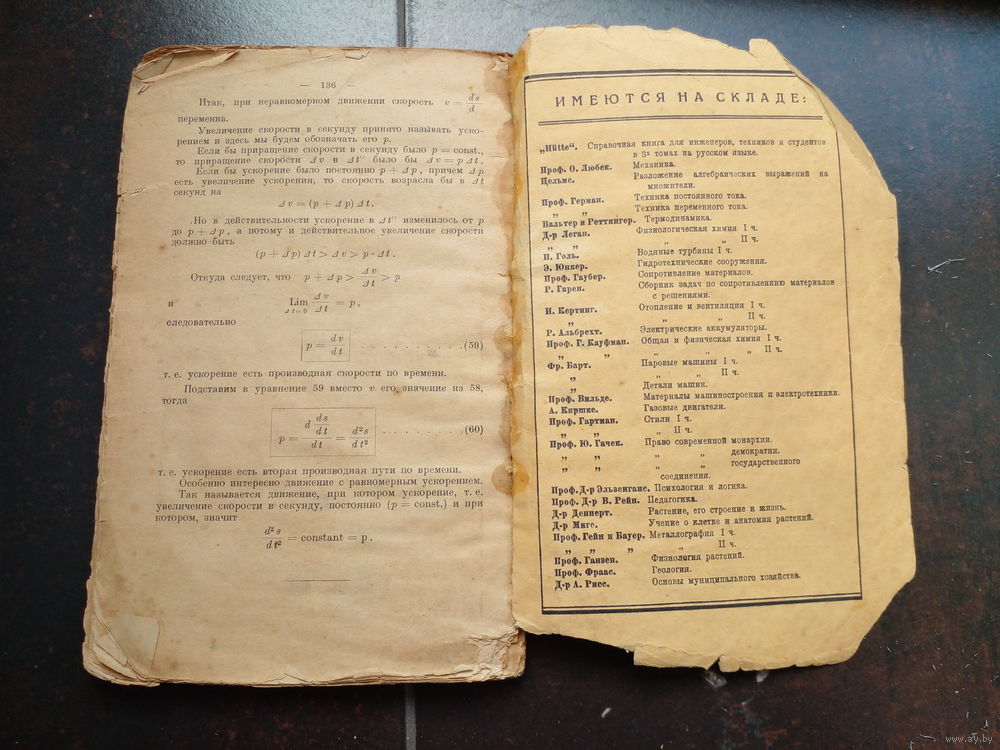 — 136 —
Итак, при неравномерном движении скорость v = ds/d
переменна.
Увеличение скорости в секунду принято называть уско-
рением и здесь мы будем обозначать его p.
Если бы приращение скорости в секунду было p = const.,
то приращение скорости Δv в Δt″ было бы Δv = p Δt.
Если бы ускорение было постоянно p + Δp, причем Δp
есть увеличение ускорения, то скорость возрасла бы в Δt
секунд на
Δv = (p + Δp) Δt.
Но в действительности ускорение в Δt″ изменилось от p
до p + Δp, а потому и действительное увеличение скорости
должно быть
(p + Δp) Δt > Δv > p · Δt.
Откуда следует, что p + Δp > Δv/Δt > p
и Lim Δv/Δt = p,
Δt=0
следовательно
p = dv/dt . . . . . . . . . . (59)
т. е. ускорение есть производная скорости по времени.
Подставим в уравнение 59 вместо v его значение из 58,
тогда
p = d (ds/dt)/dt = d²s/dt² . . . . . . . . (60)
т. е. ускорение есть вторая производная пути по времени.
Особенно интересно движение с равномерным ускорением.
Так называется движение, при котором ускорение, т. е.
увеличение скорости в секунду, постоянно (p = const.) и при
котором, значит
d²s/dt² = constant = p.
ИМЕЮТСЯ НА СКЛАДЕ:
„Hütte“. Справочная книга для инженеров, техников и студентов
в 3х томах на русском языке.
Проф. О. Любек. Механика.
Цельме. Разложение алгебраических выражений на
множители.
Проф. Герман. Техника постоянного тока.
„ „ Техника переменного тока.
Вальтер и Реттингер. Термодинамика.
Д-р Леган. Физиологическая химия I ч.
„ „ „ „ II ч.
П. Голь. Водяные турбины I ч.
Э. Юнкер. Гидротехнические сооружения.
Проф. Гаубер. Сопротивление материалов.
Р. Гарен. Сборник задач по сопротивлению материалов
с решениями.
И. Кертинг. Отопление и вентиляция I ч.
„ „ „ II ч.
Р. Альбрехт. Электрические аккумуляторы.
Проф. Г. Кауфман. Общая и физическая химия I ч.
„ „ „ „ „ II ч.
Фр. Барт. Паровые машины I ч.
„ „ „ II ч.
„ Детали машин.
Проф. Вильде. Материалы машиностроения и электротехники.
А. Киршке. Газовые двигатели.
Проф. Гартман. Стили I ч.
„ „ „ II ч.
Проф. Ю. Гачек. Право современной монархии.
„ „ „ „ демократии.
„ „ „ „ государственного
соединения.
Проф. Д-р Эльзенганс. Психология и логика.
Проф. Д-р В. Рейн. Педагогика.
Д-р Деннерт. Растение, его строение и жизнь.
Д-р Миге. Учение о клетке и анатомия растений.
Проф. Гейн и Бауер. Металлография I ч.
„ „ „ „ II ч.
Проф. Ганзен. Физиология растений.
Проф. Фраас. Геология.
Д-р А. Рисс. Основы муниципального хозяйства.
www.ay.by